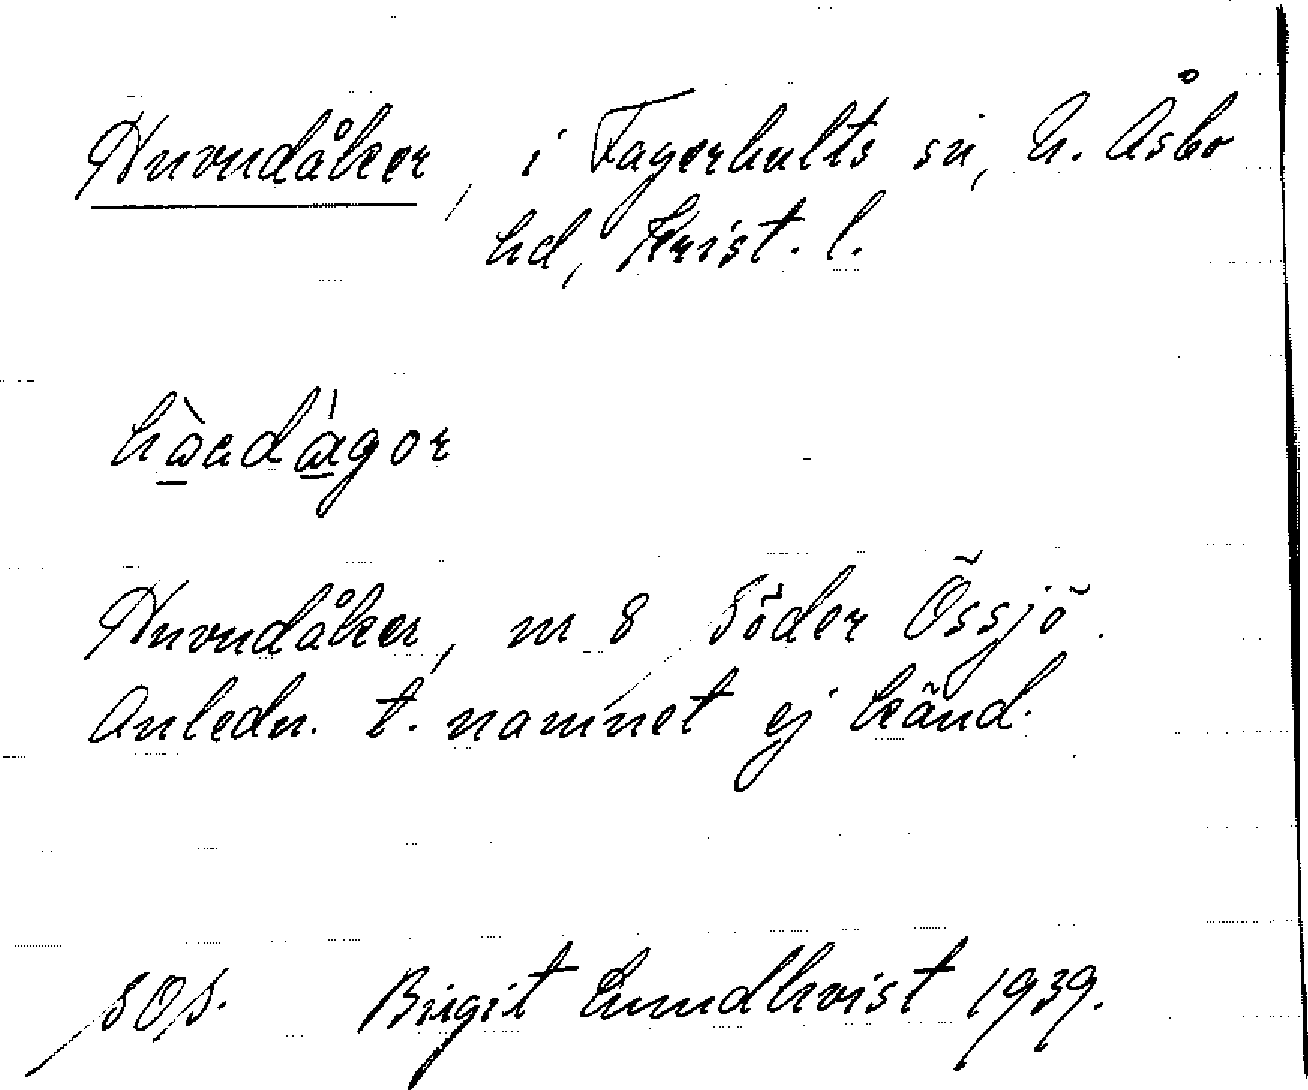 Huvudåker, i Fagerhults sn, N. Åsbo
hd, Krist. l.
Huvudåker, nr 8 Söder Össjö.
Anledn. t. namnet ej känd.
sOs. Birgit Lundkvist 1939.